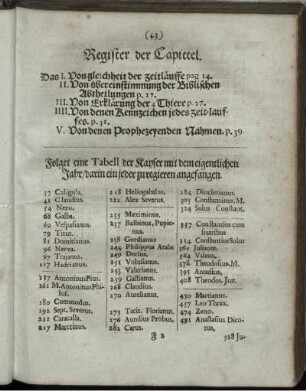 (43)
Register der Capittel.
Das I. Von gleichheit der zeitläuffe pag. 14.
II. Von übereinstimmung der Biblischen
Abtheilungen p. 17.
III. Von Erklärung der 4 Thiere p. 27.
IIII. Von denen Kennzeichen jedes zeit-lauf-
fes, p. 31.
V. Von denen Prophezeyenden Nahmen. p. 39.
Folget eine Tabell der Kayser mit dem eigentlichen
Jahr / darin ein jeder zu regieren angefangen.
37 Caligula.
41 Claudius.
54 Nero.
68 Galba.
69 Vespasianus.
79 Titus.
81 Domitianus.
96 Nerva.
97 Trajanus.
117 Hadrianus.
137 Antoninus Pius.
161 M. Antoninus Phi-
losof.
180 Commodus.
192 Sept. Severus.
211 Caracalla.
217 Macrinus.
218 Heliogabalus.
222 Alex. Severus.
235 Maximinus.
237 Balbinus, Pupie-
nus.
238 Gordianus
244 Philippus Arabs
249 Decius.
251 Volusianus.
253 Valerianus.
259 Gallienus.
268 Claudius.
270 Aurelianus.
275 Tacit. Florianus.
276 Aurelius Probus.
282 Carus.
284 Diocletianus.
305 Constantinus, M.
324 Solus Constant.
337 Constantius cum
fratribus
354 Constantius Solus
361 Julianus.
364 Valens.
378 Theodosius. M.
395 Arcadius.
408 Theodos. Jun.
450 Martianus.
457 Leo Thrax.
474 Zeno.
491 Anastasius Dico-
rus.
F 2
518 Ju-